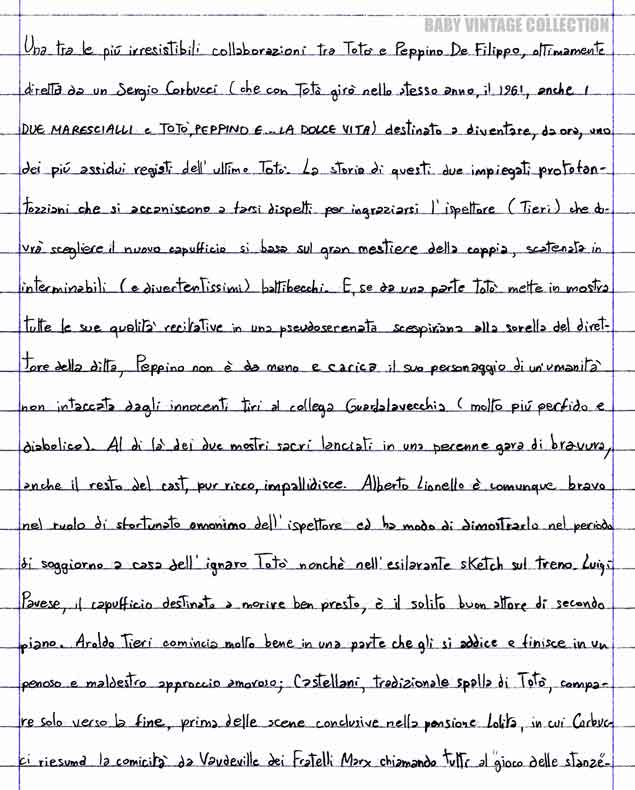 BABY VINTAGE COLLECTION
Una tra le più irresistibili collaborazioni tra Totò e Peppino De Filippo, ottimamente
diretta da un Sergio Corbucci (che con Totò girò nello stesso anno, il 1961, anche I
DUE MARESCIALLI e TOTÒ, PEPPINO E... LA DOLCE VITA) destinato a diventare, da ora, uno
dei più assidui registi dell'ultimo Totò. La storia di questi due impiegati protofan-
tozziani che si accaniscono a farsi dispetti per ingraziarsi l'ispettore (Tieri) che do-
vrà scegliere il nuovo capufficio si basa sul gran mestiere della coppia, scatenata in
interminabili (e divertentissimi) battibecchi. E, se da una parte Totò mette in mostra
tutte le sue qualità recitative in una pseudoserenata scespiriana alla sorella del diret-
tore della ditta, Peppino non è da meno e carica il suo personaggio di un'umanità
non intaccata dagli innocenti tiri al collega Guardalavecchia (molto più perfido e
diabolico). Al di là dei due mostri sacri lanciati in una perenne gara di bravura,
anche il resto del cast, pur ricco, impallidisce. Alberto Lionello è comunque bravo
nel ruolo di sfortunato omonimo dell'ispettore ed ha modo di dimostrarlo nel periodo
di soggiorno a casa dell'ignaro Totò nonchè nell'esilarante sketch sul treno. Luigi
Pavese, il capufficio destinato a morire ben presto, è il solito buon attore di secondo
piano. Aroldo Tieri comincia molto bene in una parte che gli si addice e finisce in un
penoso e maldestro approccio amoroso; Castellani, tradizionale spalla di Totò, compa-
re solo verso la fine, prima delle scene conclusive nella pensione Lolita, in cui Corbuc-
ci riesuma la comicità da Vaudeville dei Fratelli Marx chiamando tutti al "gioco delle stanze"-